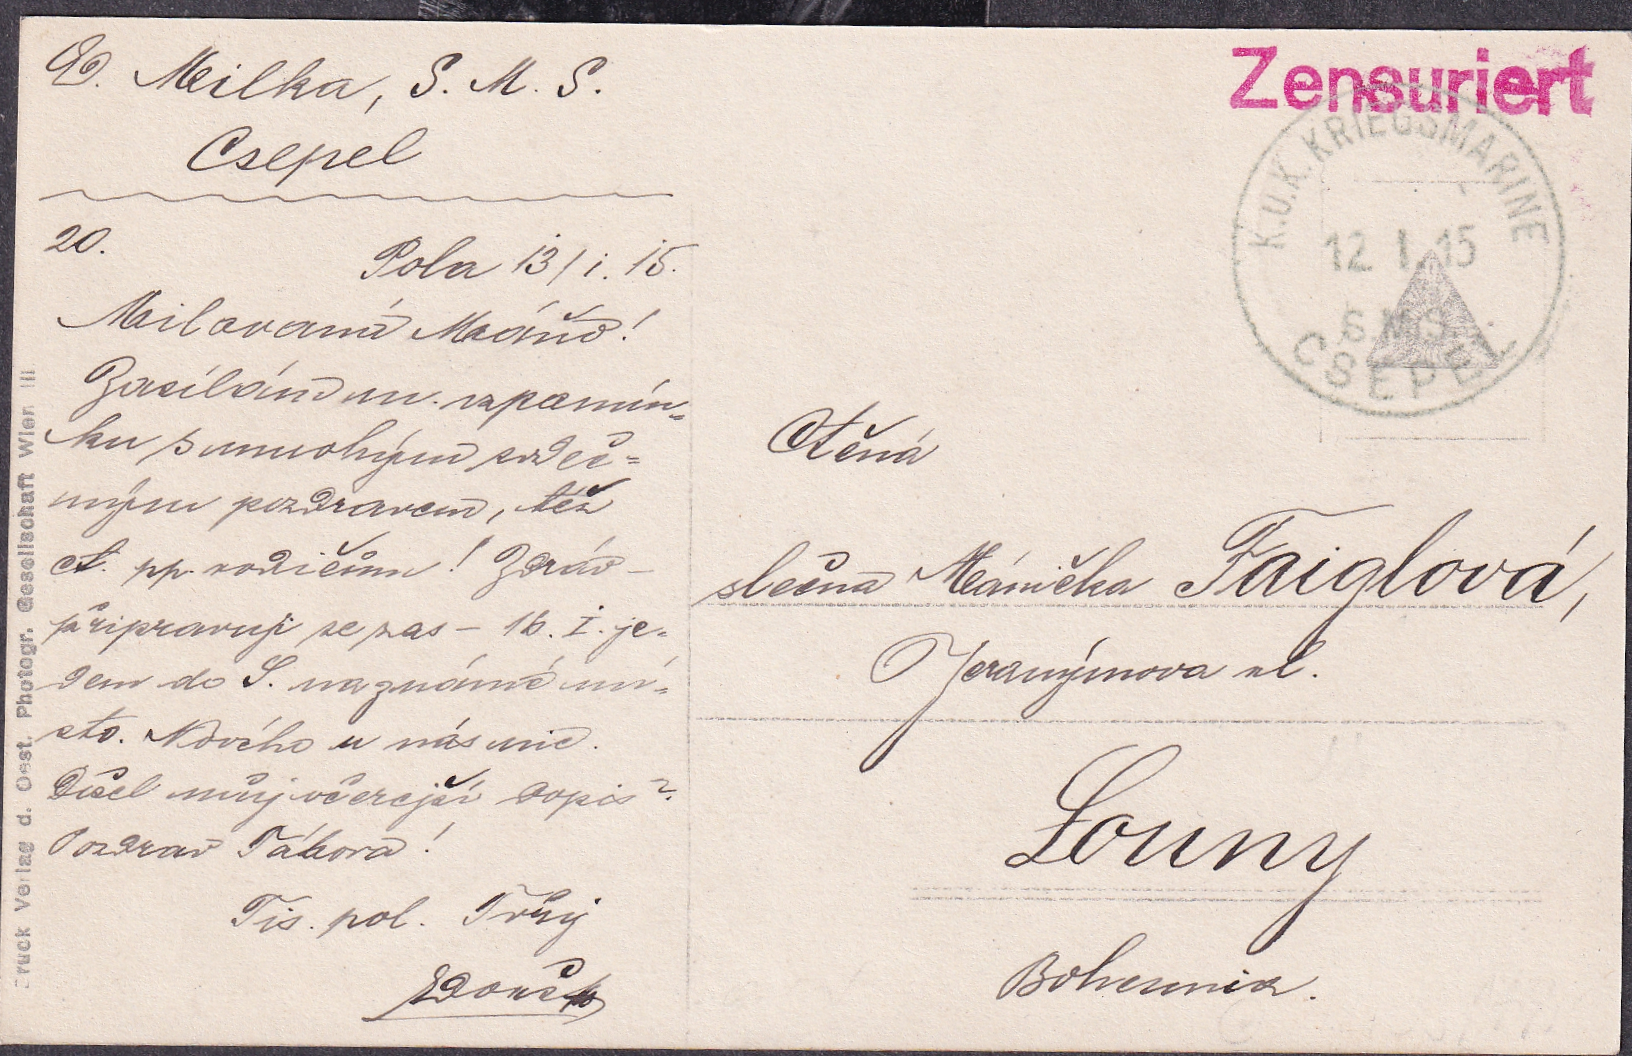 Ed. Milka, S. M. S.
Csepel
20.
Pola 13/I. 15.
Milovaná Máňo!
Zasílám m. vzpomín-
ku s mnohým srdeč-
ným pozdravem, též
ct. pp. rodičům! Zdráv –
připravuji se zas – 16. I. je-
dem do S. na známé mí-
sto. Nového u nás nic.
Došel můj včerejší dopis?
Pozdrav Táborá!
Tis. pol. Tvůj
Zensuriert
K.U.K. KRIEGSMARINE
12 I 15
S.M.S.
CSEPEL
Ctěná
slečna Mánička Faiglová,
Jeronýmova ul.
Louny
Bohemia.
Druck Verlag d. Oest. Photogr. Gesellschaft Wien III